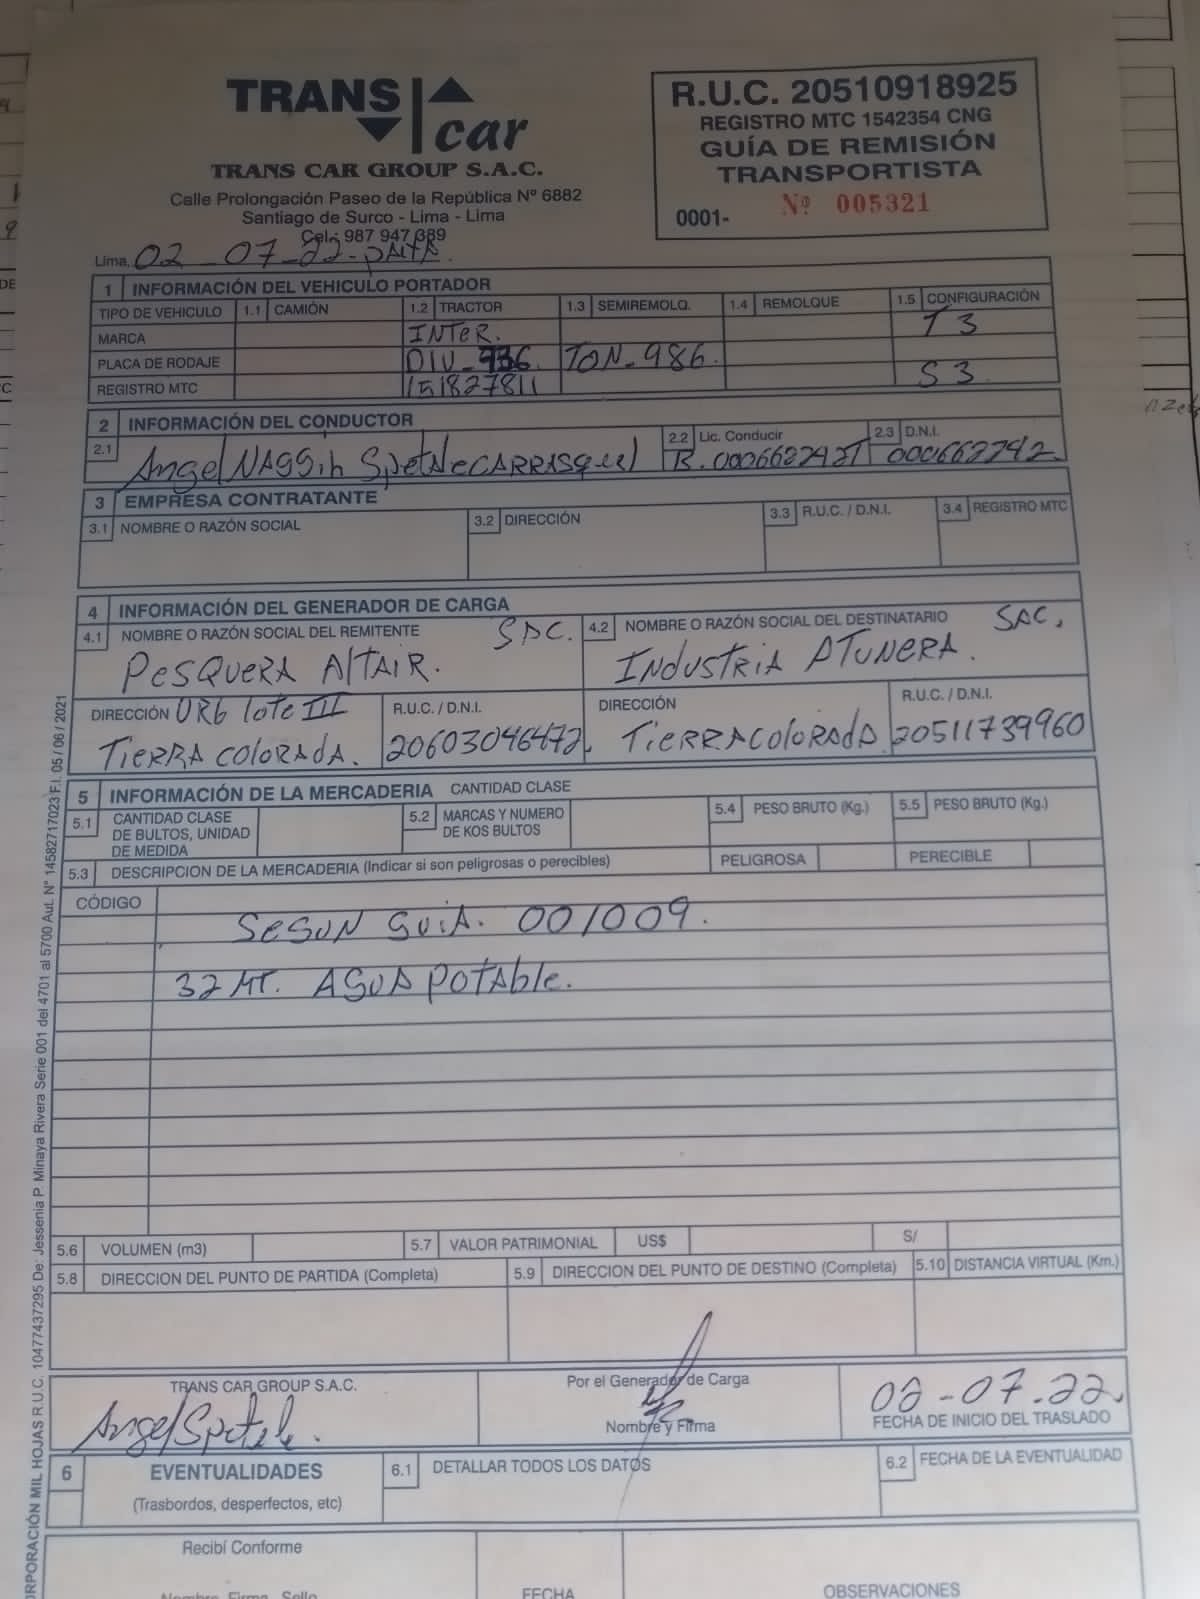 TRANS car
TRANS CAR GROUP S.A.C.
Calle Prolongación Paseo de la República Nº 6882
Santiago de Surco - Lima - Lima
Cel.: 987 947 389
R.U.C. 20510918925
REGISTRO MTC 1542354 CNG
GUÍA DE REMISIÓN
TRANSPORTISTA
0001- Nº 005321
Lima, 02 - 07 - 22 - PAITA.
1 INFORMACIÓN DEL VEHICULO PORTADOR
TIPO DE VEHICULO 1.1 CAMIÓN 1.2 TRACTOR 1.3 SEMIREMOLQ. 1.4 REMOLQUE 1.5 CONFIGURACIÓN
MARCA INTER. T3
PLACA DE RODAJE 936. TON-986.
REGISTRO MTC 151827811 S3
2 INFORMACIÓN DEL CONDUCTOR
2.1 Angel 2.2 Lic. Conducir 2.3 D.N.I. 000662742.
3 EMPRESA CONTRATANTE
3.1 NOMBRE O RAZÓN SOCIAL 3.2 DIRECCIÓN 3.3 R.U.C. / D.N.I. 3.4 REGISTRO MTC
4 INFORMACIÓN DEL GENERADOR DE CARGA
4.1 NOMBRE O RAZÓN SOCIAL DEL REMITENTE SAC.
PESQUERA ALTAIR.
4.2 NOMBRE O RAZÓN SOCIAL DEL DESTINATARIO SAC.
INDUSTRIA ATUNERA.
DIRECCIÓN URB lote III
TIERRA COLORADA.
R.U.C. / D.N.I.
20603046472.
DIRECCIÓN
TIERRA COLORADA.
R.U.C. / D.N.I.
20511739960
5 INFORMACIÓN DE LA MERCADERIA CANTIDAD CLASE
5.1 CANTIDAD CLASE
DE BULTOS, UNIDAD
DE MEDIDA
5.2 MARCAS Y NUMERO
DE KOS BULTOS
5.4 PESO BRUTO (Kg.)
5.5 PESO BRUTO (Kg.)
5.3 DESCRIPCION DE LA MERCADERIA (Indicar si son peligrosas o perecibles) PELIGROSA PERECIBLE
CÓDIGO
SEGUN GUIA. 001009.
32 MT. AGUA POTABLE.
5.6 VOLUMEN (m3) 5.7 VALOR PATRIMONIAL US$ S/
5.8 DIRECCION DEL PUNTO DE PARTIDA (Completa) 5.9 DIRECCION DEL PUNTO DE DESTINO (Completa) 5.10 DISTANCIA VIRTUAL (Km.)
TRANS CAR GROUP S.A.C.
Angel
Por el Generador de Carga
Nombre y Firma
02-07.22.
FECHA DE INICIO DEL TRASLADO
6 EVENTUALIDADES
(Trasbordos, desperfectos, etc)
6.1 DETALLAR TODOS LOS DATOS
6.2 FECHA DE LA EVENTUALIDAD
Recibí Conforme
Nombre, Firma, Sello
FECHA
OBSERVACIONES
RPORACIÓN MIL HOJAS R.U.C. 10477437295 De: Jessenia P. Minaya Rivera Serie 001 del 4701 al 5700 Aut. N° 14582717023 F.I. 05 / 06 / 2021